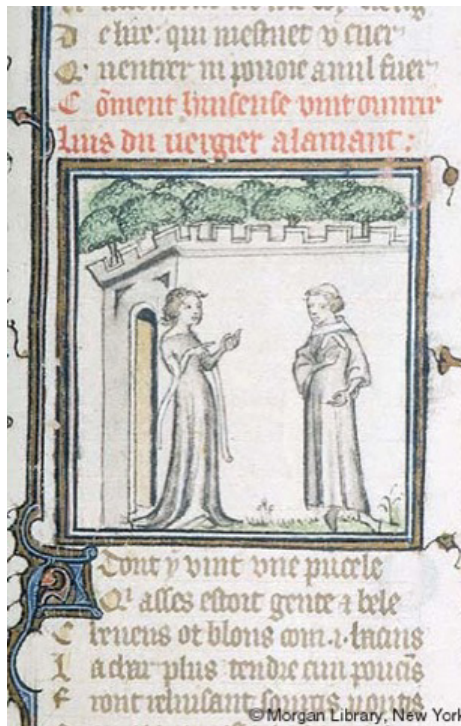 D e lui: qui mestuet v cuer
Q uentrer ni pouoie a nul fuer
C õment huiseuse vint ouurir
luis du uergier alamant:
Adont y vint vne pucele
Qi asses estoit gente & bele
C heueus ot blons com .i. bacins
L a char plus tendre cun poucis
F ront reluisant sourcis
©Morgan Library, New York